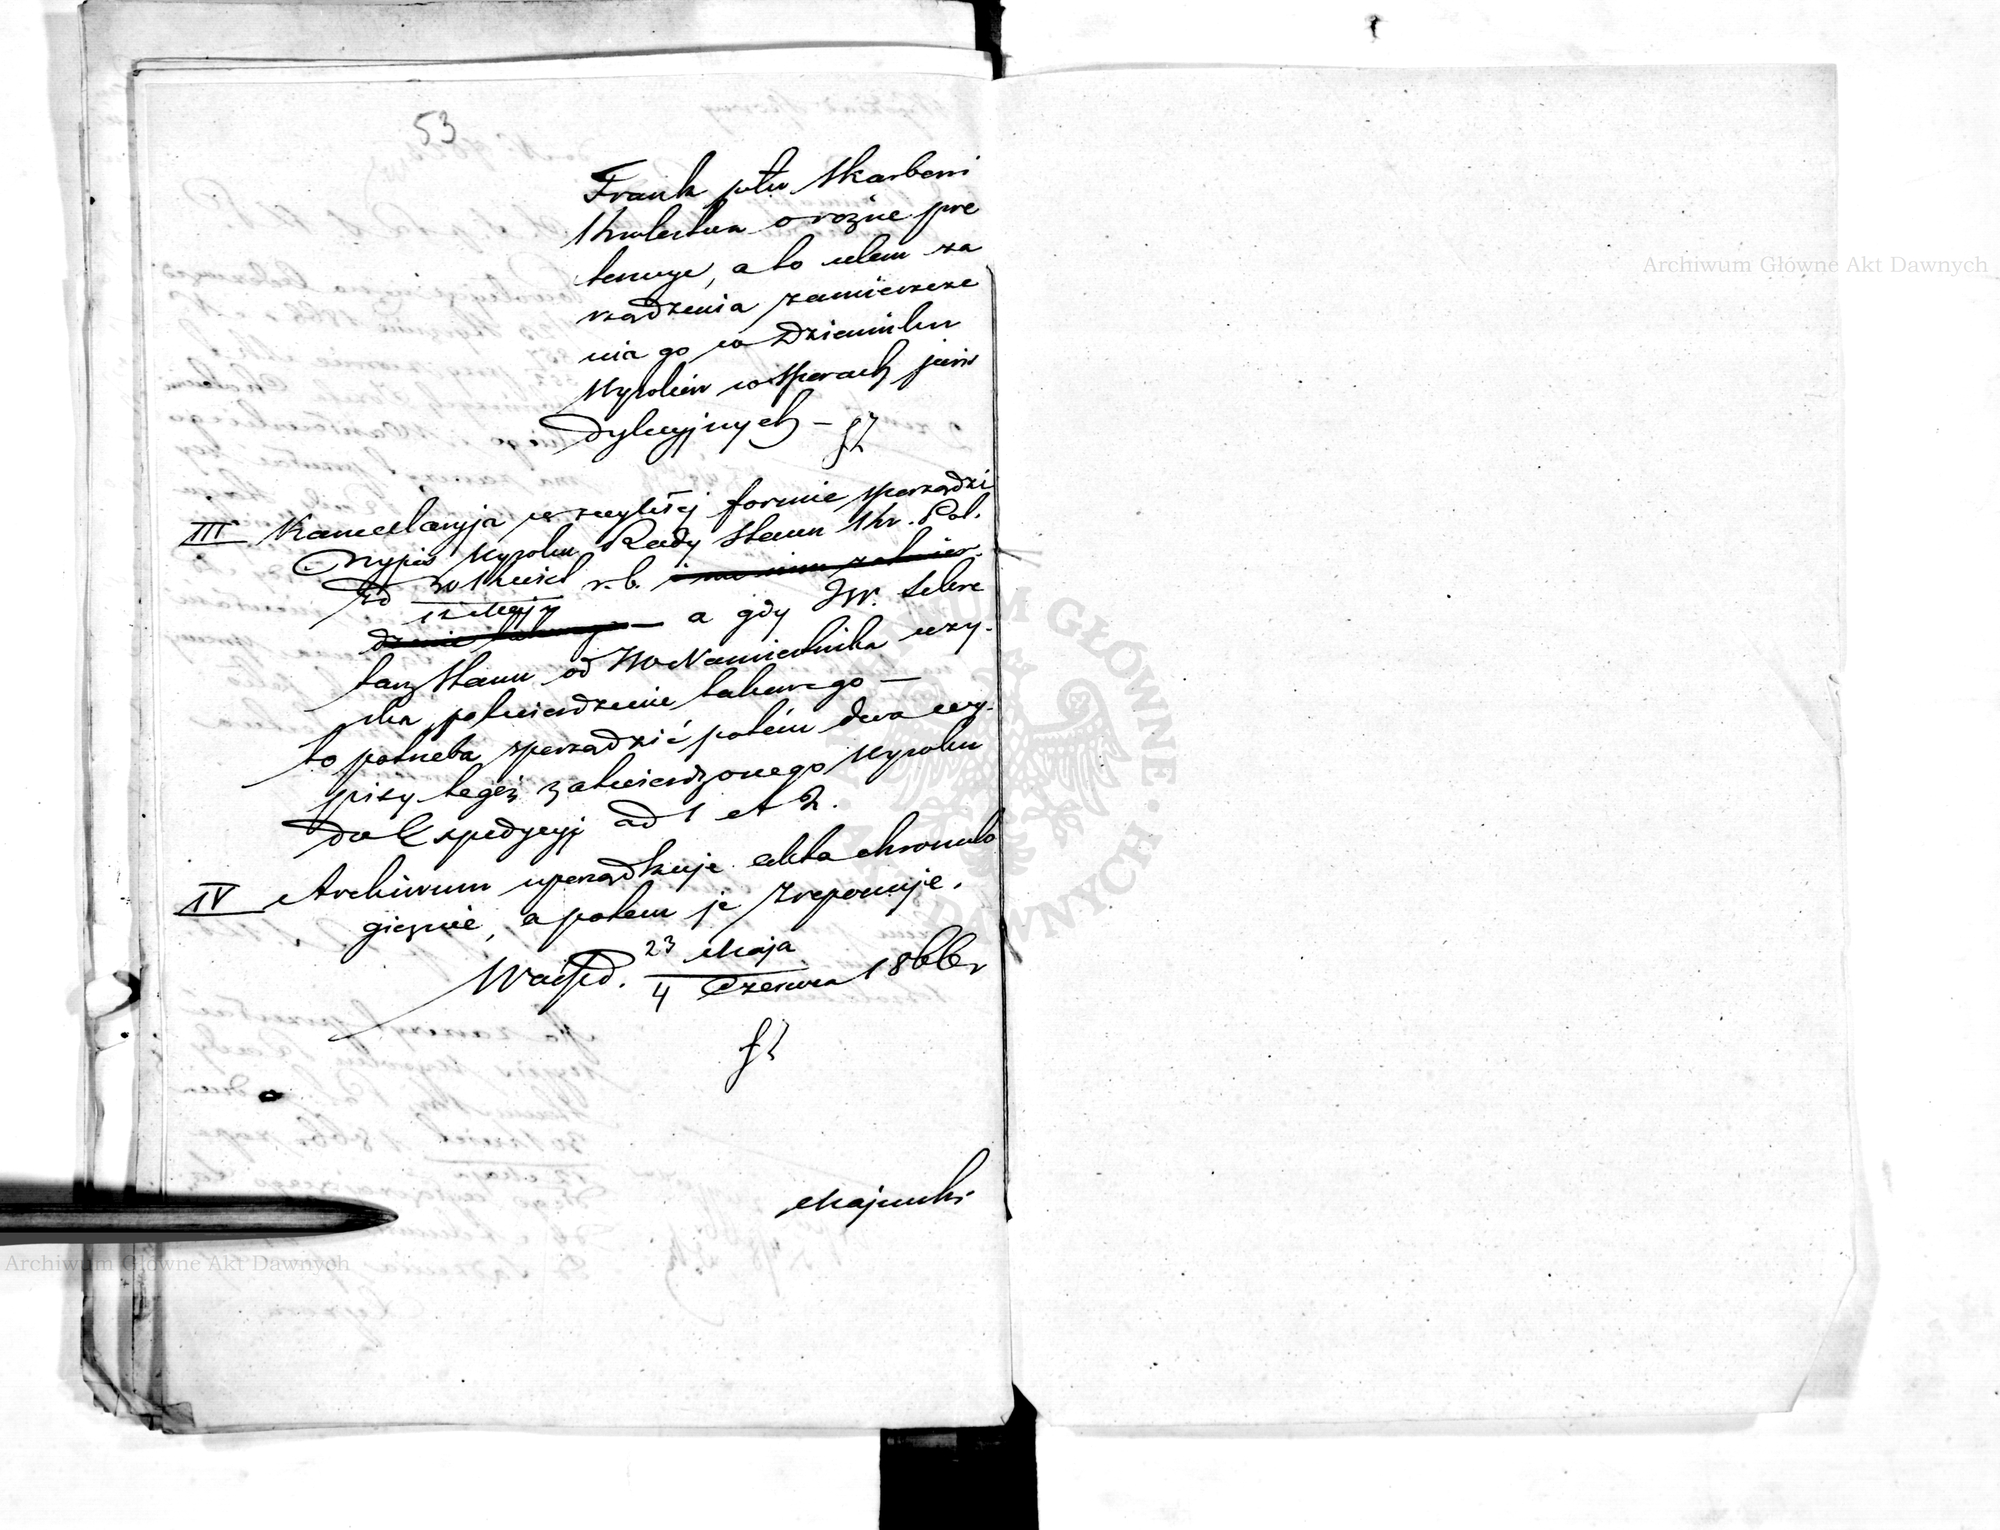 53
Frank pko Skarbowi
Królestwa o różne pre
tensye, a to celem za
rządzenia zamieszcze
nia go w Dzienniku
Wyroków w sporach juris
dykcyjnych –
III Kancellaryja w zwykłej formie sporządzi
Wypis Wyroku Rady Stanu Kr. Pol.
z d 30 Kwiet r. b.
12 Maja
a gdy JW. Sekre
tarz Stanu od JW Namiestnika uzy-
ska potwierdzenie takowego –
to potrzeba sporządzić potem dwa wy-
pisy tegoż zatwierdzonego Wyroku
do Expedycyji ad 1 et 2.
IV Archiwum uporządkuje akta chronolo
gicznie, a potem je zreponuje.
23 Maja
4 Czerwca 1866 r
Majewski
Archiwum Główne Akt Dawnych
ARCHIWUM GŁÓWNE AKT DAWNYCH
Archiwum Główne Akt Dawnych